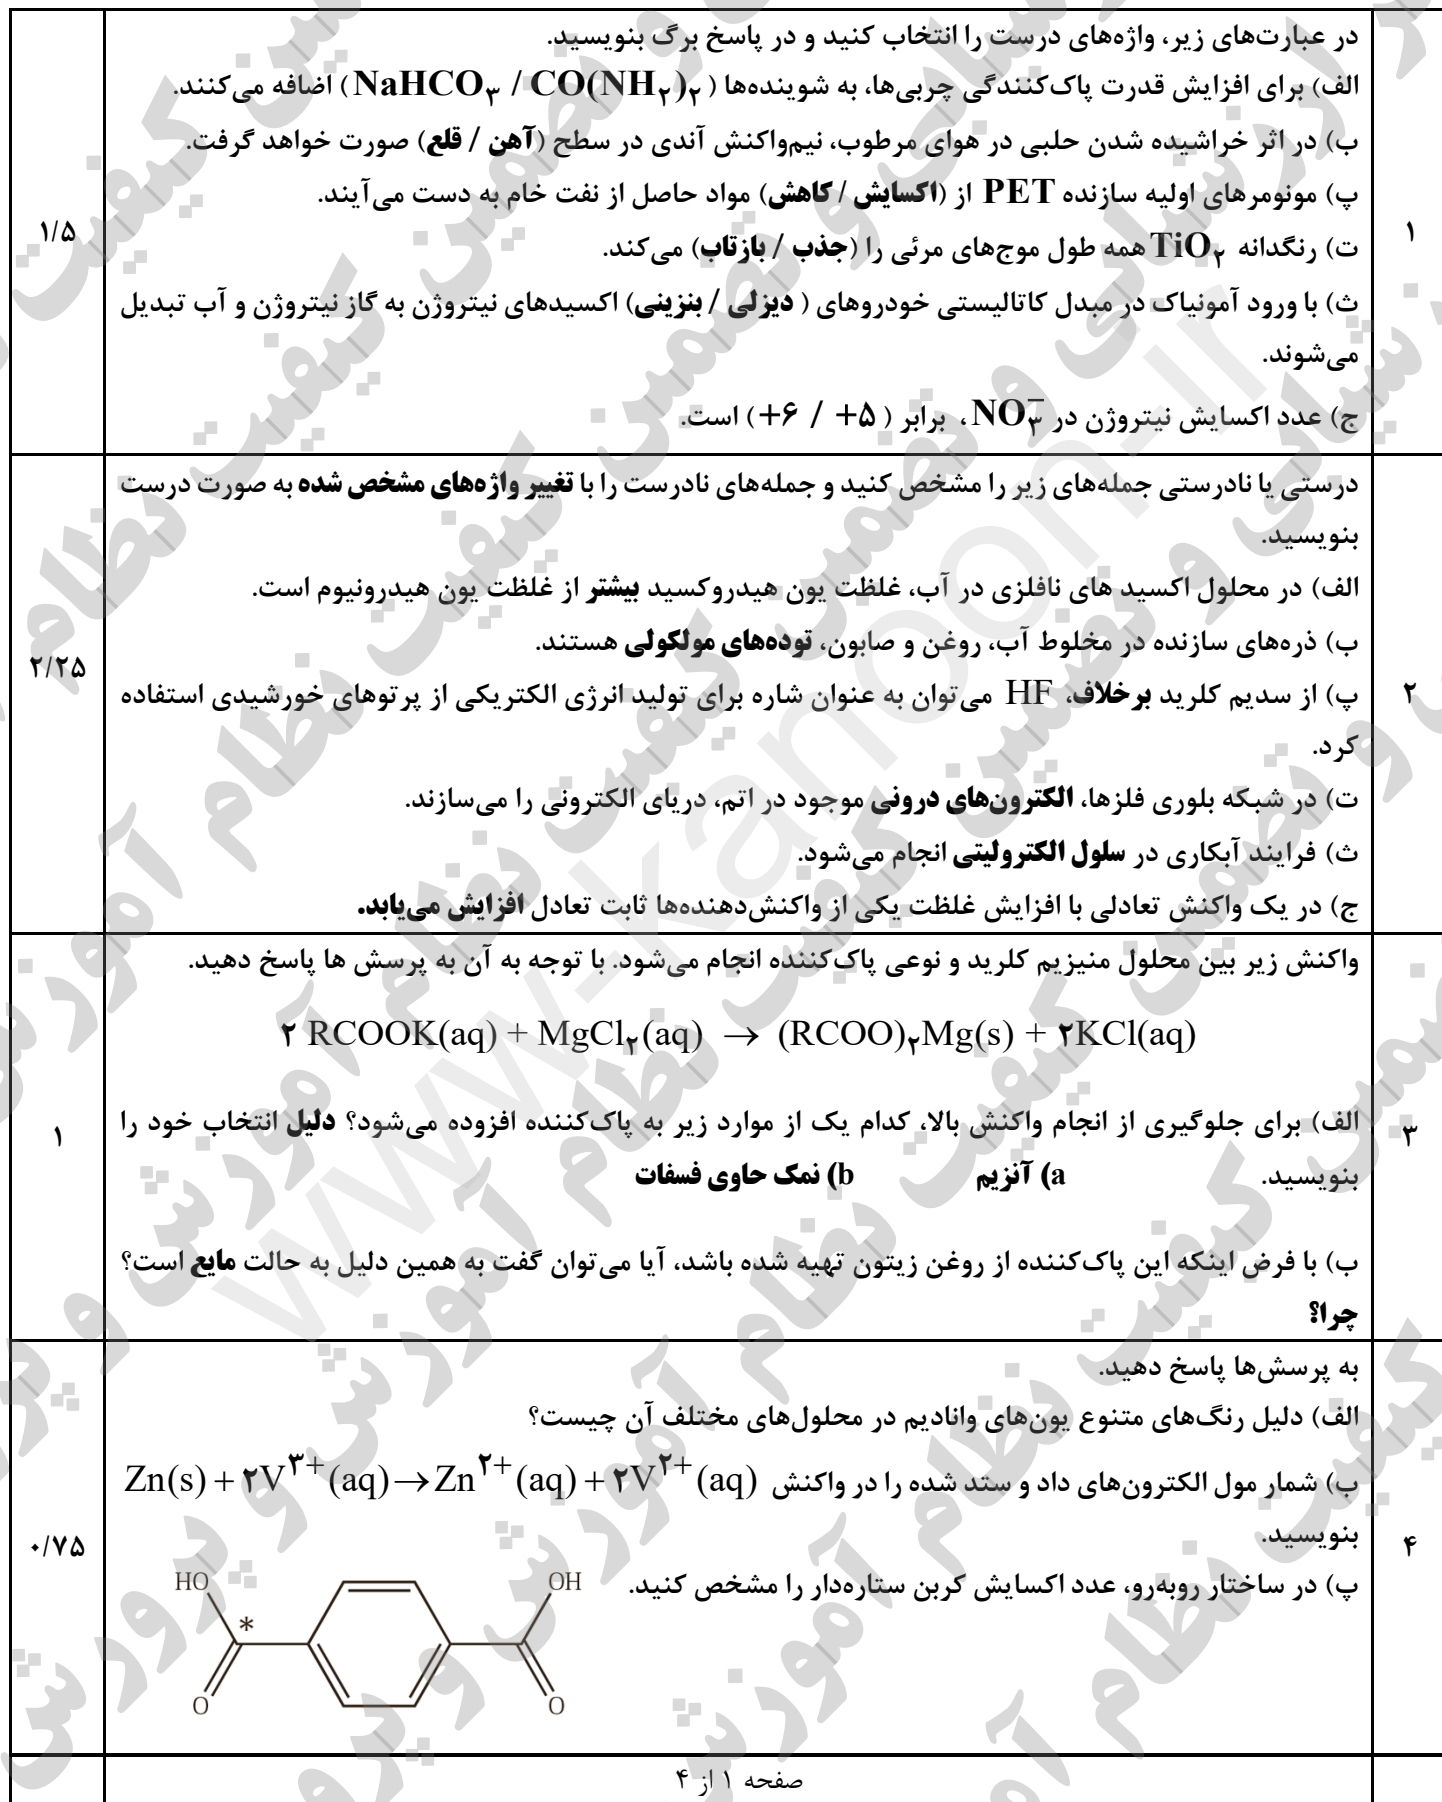 در عبارت‌های زیر، واژه‌های درست را انتخاب کنید و در پاسخ برگ بنویسید.
الف) برای افزایش قدرت پاک‌کنندگی چربی‌ها، به شوینده‌ها ( NaHCO۳ / CO(NH۲)۲ ) اضافه می‌کنند.
ب) در اثر خراشیده شدن حلبی در هوای مرطوب، نیم‌واکنش آندی در سطح (آهن / قلع) صورت خواهد گرفت.
پ) مونومرهای اولیه سازنده PET از (اکسایش / کاهش) مواد حاصل از نفت خام به دست می‌آیند.
ت) رنگدانه TiO۲ همه طول موج‌های مرئی را (جذب / بازتاب) می‌کند.
ث) با ورود آمونیاک در مبدل کاتالیستی خودروهای ( دیزلی / بنزینی) اکسیدهای نیتروژن به گاز نیتروژن و آب تبدیل
می‌شوند.
ج) عدد اکسایش نیتروژن در NO۳⁻، برابر ( +۵ / +۶ ) است.
۱
۱/۵
درستی یا نادرستی جمله‌های زیر را مشخص کنید و جمله‌های نادرست را با تغییر واژه‌های مشخص شده به صورت درست
بنویسید.
الف) در محلول اکسید های نافلزی در آب، غلظت یون هیدروکسید بیشتر از غلظت یون هیدرونیوم است.
ب) ذره‌های سازنده در مخلوط آب، روغن و صابون، توده‌های مولکولی هستند.
پ) از سدیم کلرید برخلاف، HF می‌توان به عنوان شاره برای تولید انرژی الکتریکی از پرتوهای خورشیدی استفاده
کرد.
ت) در شبکه بلوری فلزها، الکترون‌های درونی موجود در اتم، دریای الکترونی را می‌سازند.
ث) فرایند آبکاری در سلول الکترولیتی انجام می‌شود.
ج) در یک واکنش تعادلی با افزایش غلظت یکی از واکنش‌دهنده‌ها ثابت تعادل افزایش می‌یابد.
۲
۲/۲۵
واکنش زیر بین محلول منیزیم کلرید و نوعی پاک‌کننده انجام می‌شود. با توجه به آن به پرسش ها پاسخ دهید.
۲ RCOOK(aq) + MgCl۲(aq) → (RCOO)۲Mg(s) + ۲KCl(aq)
الف) برای جلوگیری از انجام واکنش بالا، کدام یک از موارد زیر به پاک‌کننده افزوده می‌شود؟ دلیل انتخاب خود را
بنویسید. a) آنزیم b) نمک حاوی فسفات
ب) با فرض اینکه این پاک‌کننده از روغن زیتون تهیه شده باشد، آیا می‌توان گفت به همین دلیل به حالت مایع است؟
چرا؟
۳
۱
به پرسش‌ها پاسخ دهید.
الف) دلیل رنگ‌های متنوع یون‌های وانادیم در محلول‌های مختلف آن چیست؟
ب) شمار مول الکترون‌های داد و ستد شده را در واکنش Zn(s) + ۲V^۳+(aq) → Zn^۲+(aq) + ۲V^۲+(aq)
بنویسید.
پ) در ساختار روبه‌رو، عدد اکسایش کربن ستاره‌دار را مشخص کنید.
HO OH
*
O O
۴
۰/۷۵
صفحه ۱ از ۴
www.kanoon.ir
ارزشیابی و تضمین کیفیت نظام آموزش و پرورش